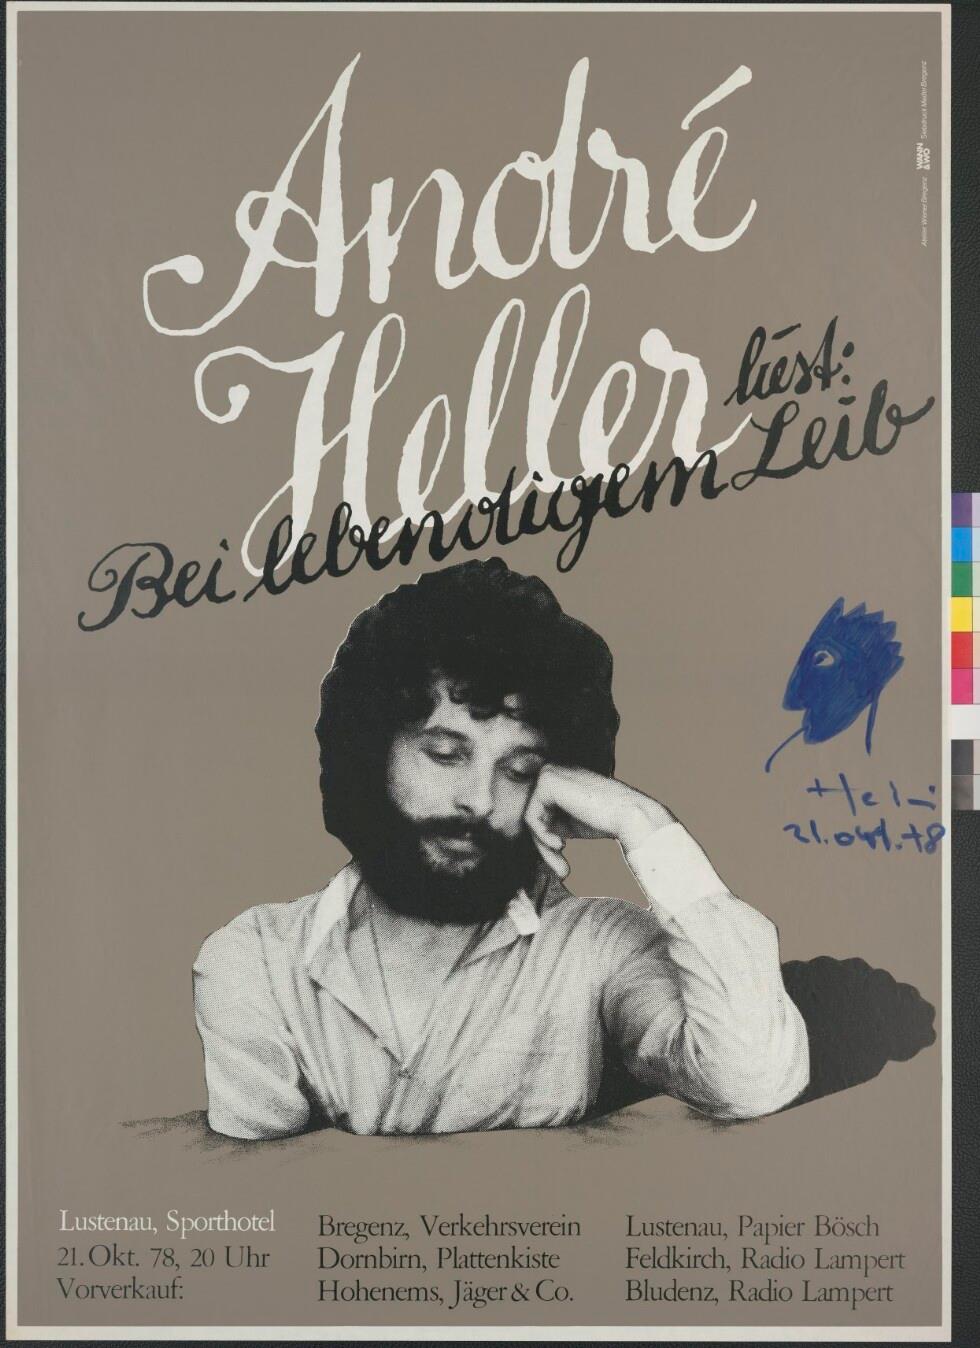 André
Heller
liest:
Bei lebendigem Leib
Atelier Wiener Bregenz WANN & WO Siebdruck Medici Bregenz
21. Okt. 78
Lustenau, Sporthotel
21. Okt. 78, 20 Uhr
Vorverkauf:
Bregenz, Verkehrsverein
Dornbirn, Plattenkiste
Hohenems, Jäger & Co.
Lustenau, Papier Bösch
Feldkirch, Radio Lampert
Bludenz, Radio Lampert